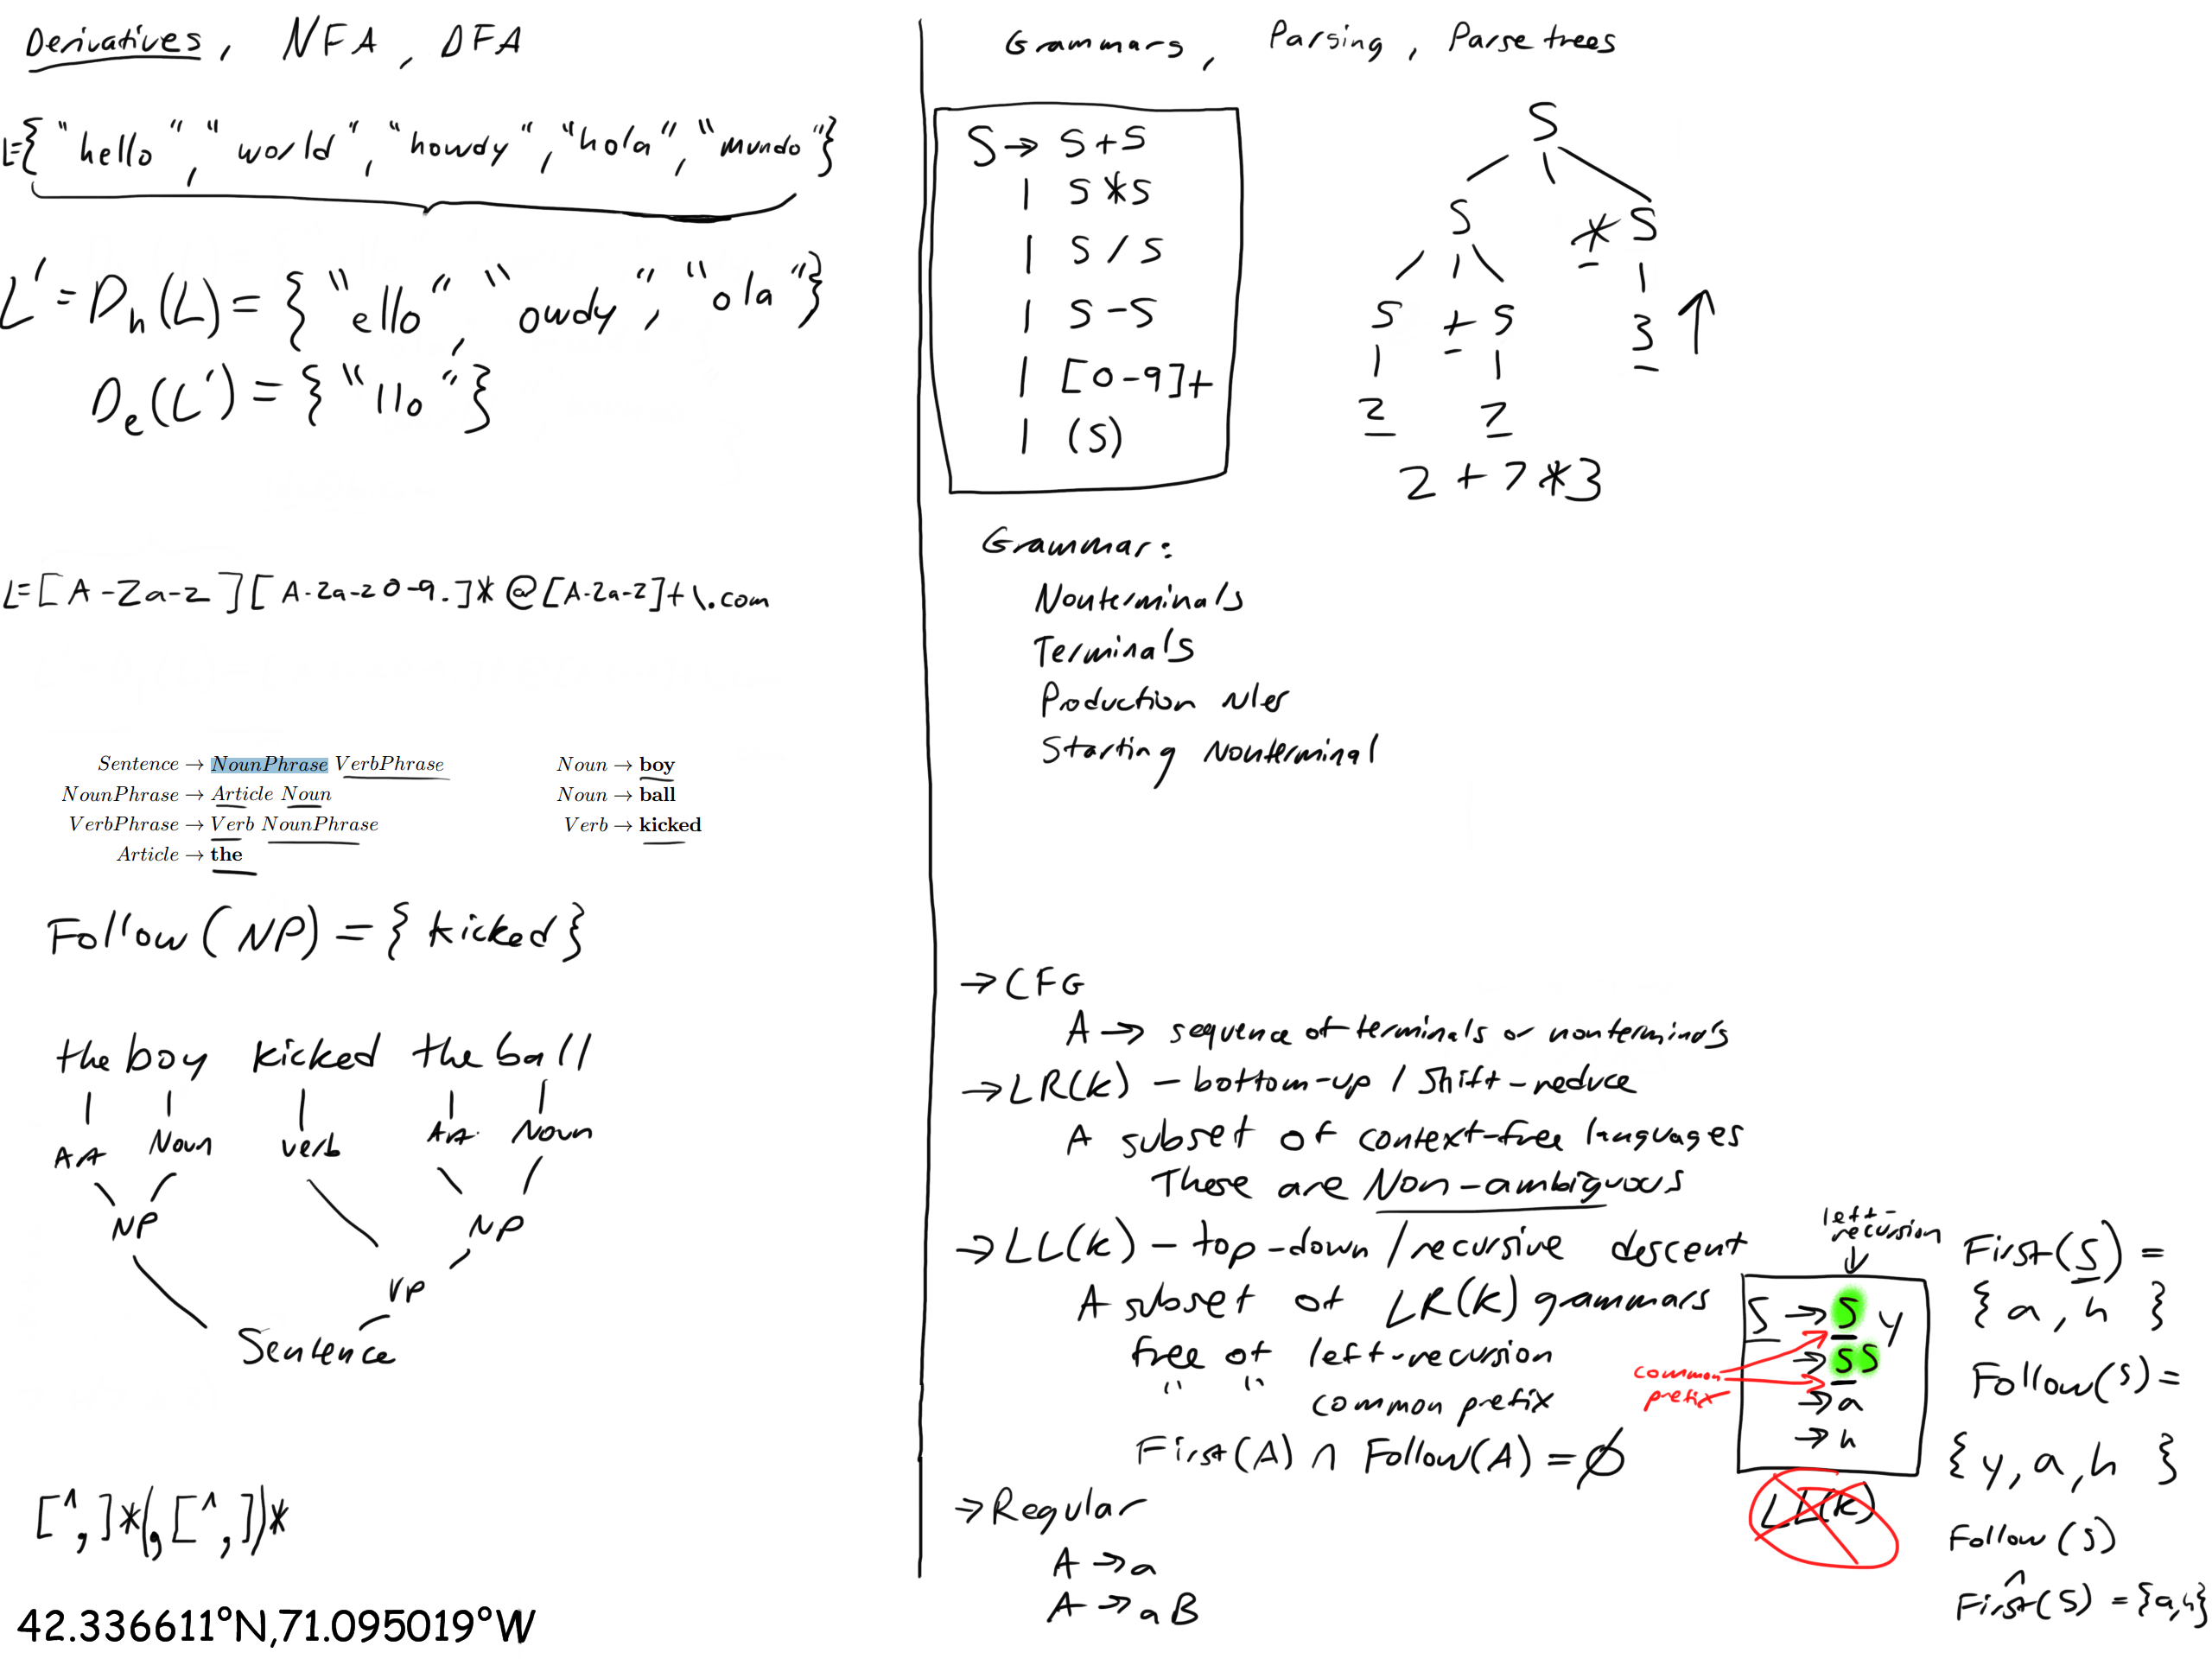 Derivatives, NFA, DFA
L={"hello", "world", "howdy", "hola", "mundo"}
L'=Dh(L)={"ello", "owdy", "ola"}
De(L')={"llo"}
L=[A-Za-z][A-Za-z0-9.]*@[A-Za-z]+\.com
Sentence → NounPhrase VerbPhrase
NounPhrase → Article Noun
VerbPhrase → Verb NounPhrase
Article → the
Noun → boy
Noun → ball
Verb → kicked
Follow(NP)={kicked}
the boy kicked the ball
Art Noun verb Art. Noun
NP NP
VP
Sentence
[^,]*(,[^,])*
42.336611°N,71.095019°W
Grammars, Parsing, Parse trees
S→ S+S
| S*S
| S/S
| S-S
| [0-9]+
| (S)
S
S * S
S + S 3 ↑
2 7
2+7*3
Grammar:
Nonterminals
Terminals
Production rules
Starting Nonterminal
→CFG
A→ sequence of terminals or nonterminals
→LR(k) - bottom-up / Shift-reduce
A subset of context-free languages
These are Non-ambiguous
→LL(k) - top-down / recursive descent
A subset of LR(k) grammars
free of left-recursion
" " common prefix
First(A) ∩ Follow(A) = ∅
→Regular
A→a
A→aB
left-
recursion
↓
S→Sy
→SS
→a
→h
common
prefix
LL(k)
First(S)=
{a,h }
Follow(S)=
{y,a,h }
Follow(S)
∩
First(S)={a,h}